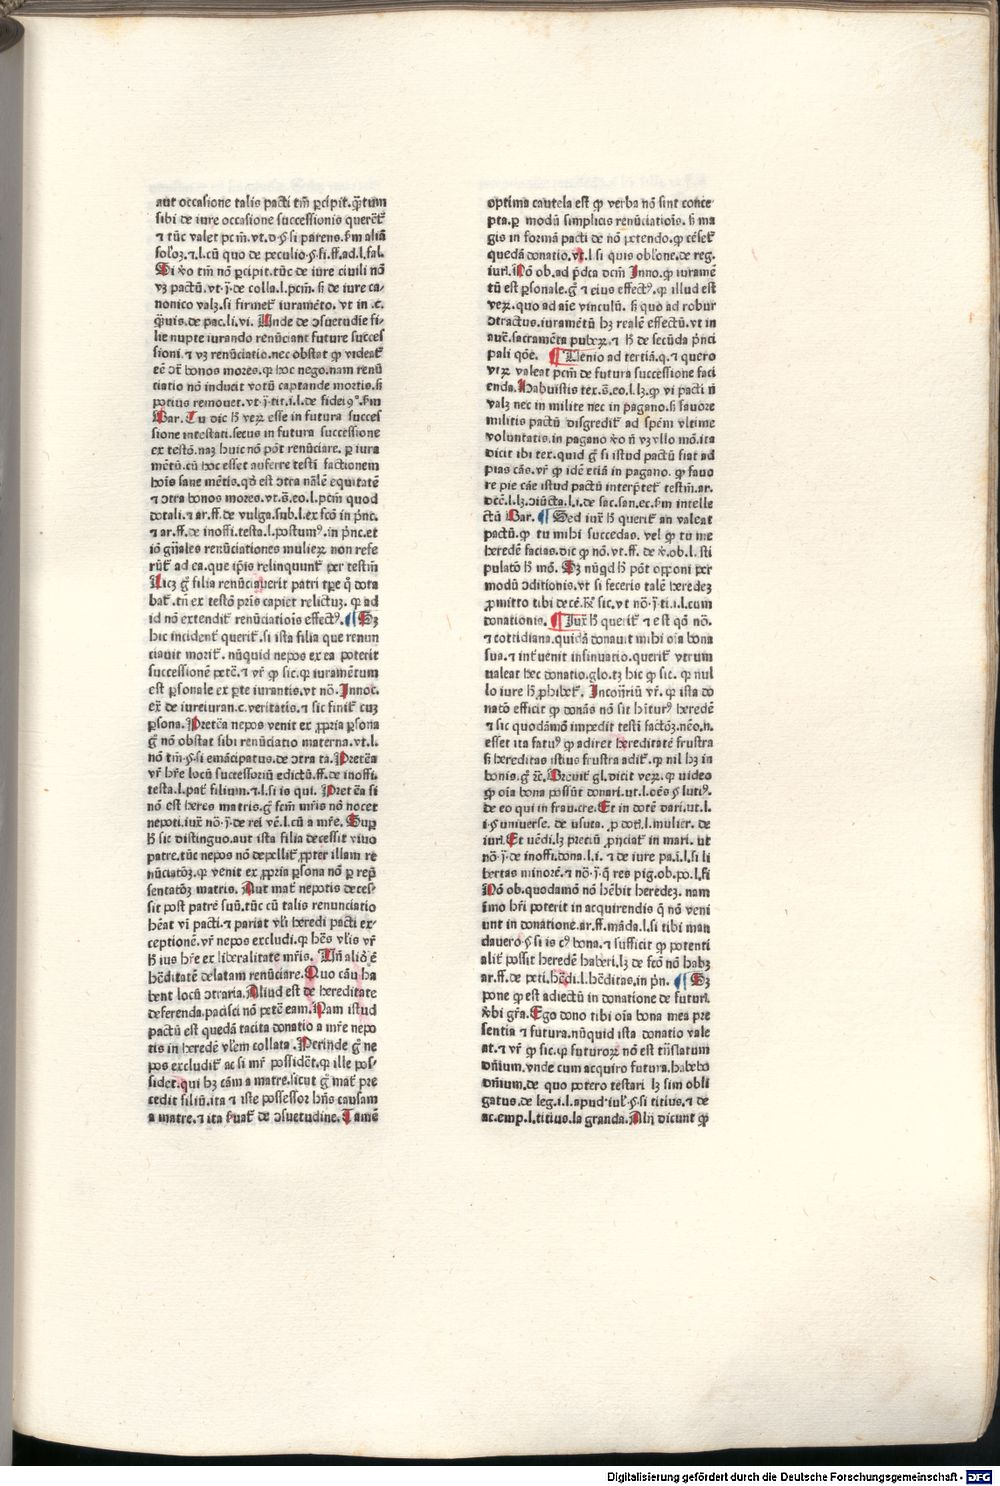 aut occasione talis pacti tm̄ ꝑcipit᷑.ꝙ̄tum
sibi de iure occasione successionis querēt᷑
⁊ tūc valet pcm̄.vt.d.§.si parens.ẜm aliā
solōꝫ.⁊.l.cū quo de peculio.§.fi.ff.ad.l.fal.
Si ꝟo tm̄ nō ꝑcipit.tūc de iure ciuili nō
vꝫ pactū.vt.j̄.de colla.l.pcm̄.ſi de iure ca-
nonico valꝫ.si firmet᷑ iuramēto. vt in .c.
q̄uis.de pac.li.vi. Unde de ↄsuetudīe fi-
lie nupte iurando renūciant future succes
sioni.⁊ vꝫ renūciatio.nec obstat ꝙ videat᷑
eē ↄt̄ bonos mores.ꝙ hoc nego.nam renū
tiatio nō inducit votū captande mortis.ſi
potius remouet.vt.j̄.tit.i.l.de fideiꝯ⁹.ẜm
Bar. Tu dic h̄ veꝝ esse in futura succes
sione intestati.secus in futura successione
ex testō.naꝫ huic nō pōt renūciare. ꝑ iura
mētū.cū hoc esset auferre testī factionem
hoīs sane mētis.qd̄ est ↄtra nālē equitatē
⁊ ↄtra bonos mores.vt.s̄.eo.l.pcm̄ quod
dotali.⁊ ar.ff.de vulga.sub.l.ex fcō in p̄nc.
⁊ ar.ff.de inoffi.testa.l.postum⁹.in p̄nc.et
iō gn̄ales renūciationes mulieꝝ non refe
rūt᷑ ad ea.que ip̄is relinquunt᷑ per testm̄
Licꝫ g̊ filia renūciauerit patri tp̄e q̊ dota
bat᷑.tn̄ ex testō pr̄is capiet relictuꝫ. ꝙ ad
id nō extendit᷑ renūciatiois effect⁹.¶ Sꝫ
hic incident᷑ querit᷑.si ista filia que renun
ciauit morit᷑. nūquid nepos ex ea poterit
successionē petē.⁊ vr̄ ꝙ sic.ꝙ iuramētum
est ꝑsonale ex ꝑte iurantis.vt nō.Innoc.
ex̄ de iureiuran.c.veritatis.⁊ sic finit᷑ cuꝫ
ꝑsona.Pretēa nepos venit ex ꝓpria ꝑsona
g̊ nō obstat sibi renūciatio materna.vt.l.
nō tm̄.§.si emācipatus.de ↄtra ta.Pretēa
vr̄ hr̄e locū successoriū edictū.ff.de inoffi.
testa.l.pat᷑ filium.⁊.l.si is qui. Pretēa si
nō est heres matris.g̊ fcm̄ mr̄is nō nocet
nepoti.iux̄ nō.j̄.de rei vē.l.cū a mr̄e. Suꝑ
h̄ sic distinguo.aut ista filia decessit viuo
patre.tūc nepos nō depellit᷑ ꝓpter illam re
nūciatōꝫ.ꝙ venit ex ꝓpria ꝑsona nō ꝑ rep̄
sentatōꝫ matris. Aut mat᷑ nepotis deces-
sit post patrē suū.tūc cū talis renunciatio
hēat vī pacti.⁊ pariat vl̄i heredi pacti ex-
ceptionē.vr̄ nepos excludi.ꝙ hēs vl̄is vr̄
h̄ ius hr̄e ex liberalitate mr̄is. Tn̄ aliō ē
hēditatē delatam renūciare.Quo cāu ha
bent locū ↄtraria.Aliud est de hereditate
deferenda.pacisci nō petē eam.Nam istud
pactū est quedā tacita donatio a mr̄e nepo
tis in heredē vl̄em collata .Perinde g̊ ne
pos excludit᷑ ac si mr̄ possidēt.ꝙ ille pos-
sidet.qui hꝫ cām a matre.sicut g̊ mat᷑ pre
cedit filiū.ita ⁊ iste possessor hn̄s causam
a matre.⁊ ita ẜuat᷑ de ↄsuetudine.Tamē
optima cautela est ꝙ verba nō sint conce
pta.ꝑ modū simplicis renūciatiois. ſi ma
gis in formā pacti de nō petendo.ꝙ cēset᷑
quedā donatio.vt.l si quis obl̄one.de reg.
iuri.Nō ob.ad p̄dca dcm̄ Inno.ꝙ iuramē
tū est ꝑsonale.g̊ ⁊ eius effect⁹.ꝙ illud est
veꝝ.quo ad aīe vinculū. ſi quo ad robur
ↄtractus.iuramētū hꝫ realē effectū.vt in
autē.sacramēta pubeꝝ.⁊ h̄ de secūda p̄nci
pali qōe. ¶ Uenio ad tertiā.q.⁊ quero
vtꝝ valeat pcm̄ de futura successione faci
enda.Habuistis tex.s̄.eo.l.lꝫ.ꝙ vi pacti n̄
valꝫ nec in milite nec in pagano.ſi fauore
militis pactū disgredit᷑ ad spēm vltime
voluntatis.in pagano ꝟo n̄ vꝫ vllo mō.ita
dicit ibi tex.quid g̊ si istud pactū fiat ad
pias cās.vr̄ ꝙ idē etiā in pagano. ꝙ fauo
re pie cāe istud pactū interp̄tet᷑ testm̄.ar.
dcē.l.lꝫ.ↄiūcta.l.i.de sac.san.ec.ẜm intelle
ctū Bar.¶ Sed iux̄ h̄ querit᷑ an valeat
pactū.ꝙ tu mihi succedas. vel ꝙ tu me
heredē facias.dic ꝙ nō.vt.ff. de ꝟ.ob.l. sti
pulatō h̄ mō. Sꝫ nūqd h̄ pōt opponi per
modū ↄditionis.vt si feceris talē heredeꝫ
ꝓmitto tibi decē.Rͬ sic.vt nō.j̄.ti.i.l.cum
donationis. ¶ Iux̄ h̄ querit᷑ ⁊ est qō nō.
⁊ cottidiana.quidā donauit mihi oīa bona
sua.⁊ int᷑uenit insinuatio.querit᷑ vtrum
ualeat hec donatio.glo.tꝫ hic ꝙ sic. ꝙ nul
lo iure h̄ ꝓhibet᷑. Incōtrariū vr̄. ꝙ ista do
natō efficit ꝙ donās nō sit hītur⁹ heredē
⁊ sic quodāmō impedit testī factōꝫ.neō.n.
esset ita fatu⁹ ꝙ adiret hereditatē frustra
ſi hereditas istius frustra adit᷑.ꝙ nil hꝫ in
bonis.g̊ ⁊c̄. Breuit᷑ gl.dicit veꝝ.ꝙ uideo
ꝙ oīa bona possūt donari.ut.l.oēs §.luti⁹.
de eo qui in frau.cre.Et in dotē dari.ut.l.
i.§.uniuerse. de usuca. ꝓ doti.l.mulier. de
iuri.Et uēdi.lꝫ preciū ꝓnciat᷑ in mari. ut
nō.j̄.de inoffi.dona.l.i. ⁊ de iure pa.i.l.si li
bertas minorē.⁊ nō.j̄.q̄ res pig.ob.po.l.fi
Nō ob.quodamō nō hēbit heredeꝫ. nam
imo hr̄i poterit in acquirendis q̄ nō veni
unt in donatione.ar.ff.māda.l.si tibi man
dauero.§.si is c⁹ bona.⁊ sufficit ꝙ potenti
alit᷑ possit heredē haberi.lꝫ de fcō nō habꝫ
ar.ff.de peti.hēdi.l.hēditas.in p̄n. ¶ Sꝫ
pone ꝙ est adiectū in donatione de futuri.
ꝟbi gr̄a.Ego dono tibi oīa bona mea pre
sentia ⁊ futura.nūquid ista donatio vale
at.⁊ vr̄ ꝙ sic.ꝙ futuroꝝ nō est trn̄slatum
dn̄ium.vnde cum acquiro futura.habebo
dn̄ium.de quo potero testari lꝫ sim obli
gatus.de leg.i.l.apud iul᷑.§.si titius.⁊ de
ac.emp.l.titius.la granda.Alij dicunt ꝙ
Digitalisierung gefördert durch die Deutsche Forschungsgemeinschaft - DFG